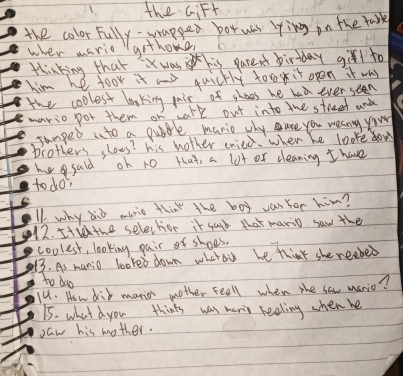 the Gift
the color fully-wrapped box was lying on the table
when mario got home.
thinking that it was his parent birthday gift to
him he took it and quickly it open it was
the coolest looking pair of shoes he had ever seen
mario pot them on walk out into the street and
jumped into a puddle mario why are you wearing your
brothers shoes? his mother cried. when he looked down
he said oh no that, a lot of cleaning I have
to do.
11. why did mario think the box was for him?
12. In the selection it said that mario saw the
coolest, looking pair of shoes.
13. As mario looked down what did he think she needed
to do
14. How did marios mother feell when she saw mario?
15. what d you think was mario feeling when he
saw his mother.